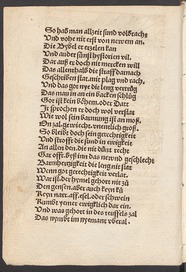 So hab man allzeit sund volbracht
Und nohe nit erst von newem an.
Die Bybel er tzelen kan
Und ander sunst hystorien vil.
Dar auß er doch nit mercken will
Das allenthalb die straff darnach
Geschehen stat. mit plag und rach.
Und das got nye die leng vertrug
Das man im an ein backen schlug
Got ist kein böhem. oder Datt
Jr sprochen er doch wol verstat
Wie wol sein barmung ist an moß.
On zal. gewicht. unentlich groß.
So bleibt doch sein gerechtikeit
Und strafft die sünd in ewigkeit
An allen den. die nit dünt recht
Gar offt. byß inn das neünd geschlecht
Barmhertzigkeit die leng nit stat
Wenn got gerechtigkeit verlat.
War ist. der hymel gehort nit zů
Den gensen. aber ouch keyn ků
Keyn narr. aff. esel. oder schwein
Kumbt yemer ewigklich dar ein.
Und was gehort in des teuffels zal
Das nymbt im nyemant überal.